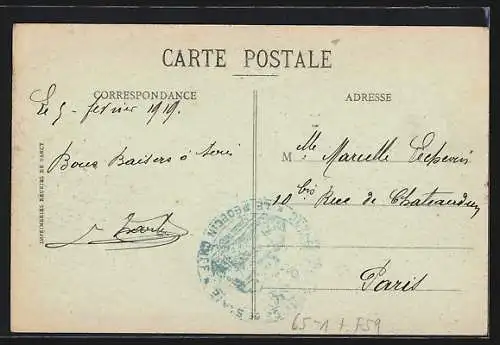 CARTE POSTALE
CORRESPONDANCE
ADRESSE
Le 5 - fevrier 1919.
Bons Baisers à tous
M lle Marcelle
10 bis Rue de Chateaudun
Paris
LE MÉDECIN CHEF
IMPRIMERIES REUNIES DE NANCY
65-1 F59